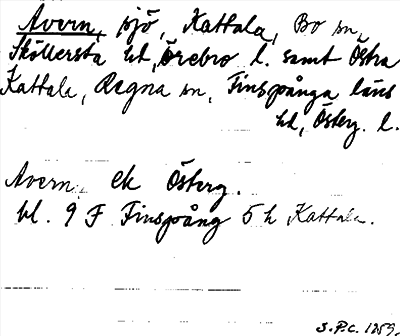 Avern, sjö, Kattala, Bo sn,
Sköllersta hd, Örebro l. samt Östra
Kattala, Regna sn, Finspånga läns
hd, Österg. l.
Avern, ek Österg.
bl. 9 F Finspång 5 h Kattala.
S.P.C. 1259.